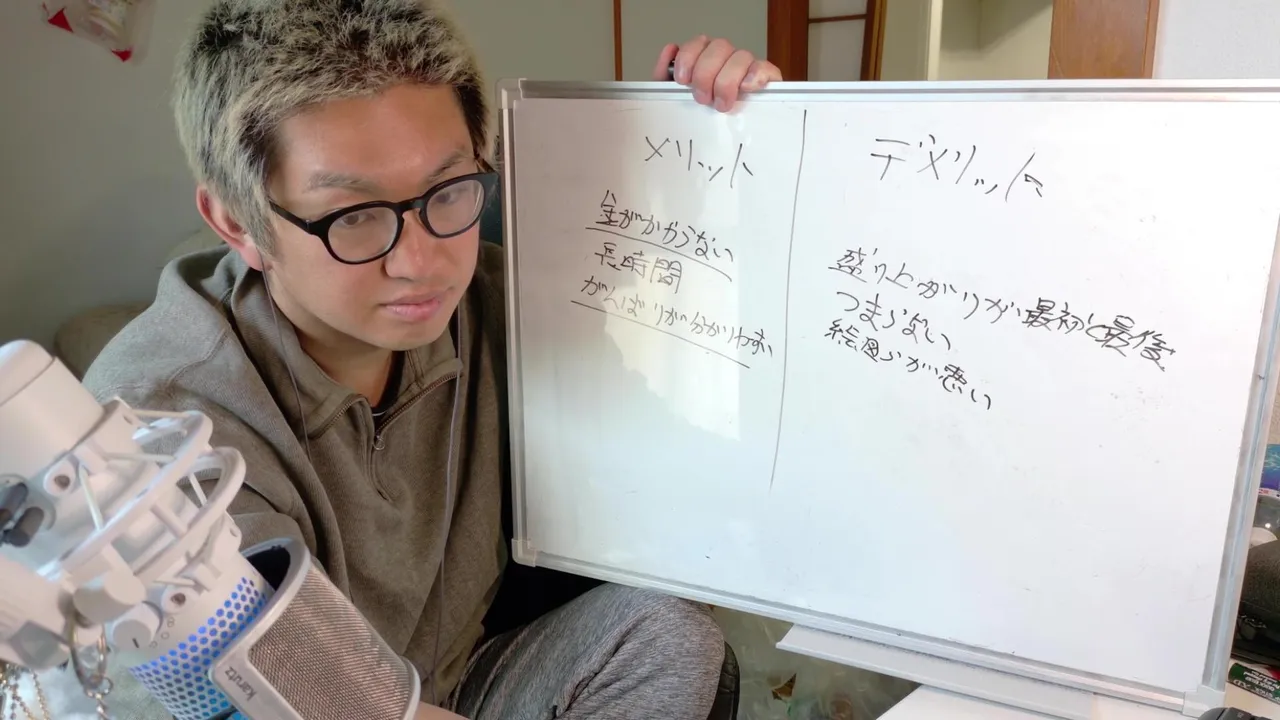 メリット
金がかからない
長時間
がんばりが分かりやすい
デメリット
盛り上がりが最初と最後
つまらない
絵図らが悪い